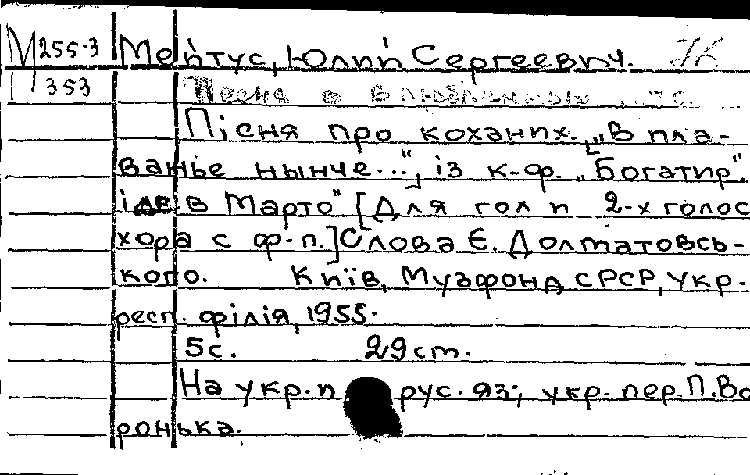 М 255-3 Мейтус, Юлий Сергеевич.
353 Песня о влюбленных
Пісня про коханих. „В пла-
ванье нынче...", із к-ф. „Богатир"
іде в Марто" [Для гол и 2-х голос
хора с ф-п.] Слова Є. Долматовсь-
кого. Київ, Музфонд СРСР, Укр.
респ. філія, 1955.
5с. 29 cm.
На укр. и рус. яз; укр. пер. П. Во
ронька.